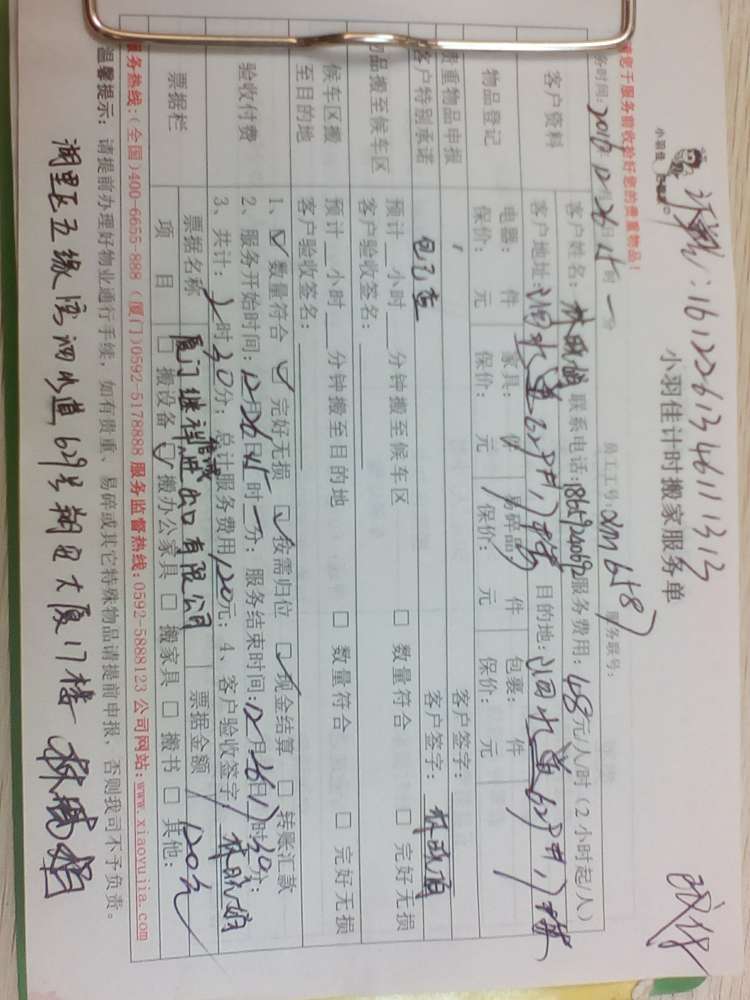 订单：16122613461113 13
小羽佳
小羽佳计时搬家服务单
请您于服务前收拾好您的贵重物品！
务时间：2016年12月26日15时一分
员工工号：xm6587
服务联号：
客户资料
客户姓名：
联系电话：
服务费用：48元/人/时（2小时起/人）
客户地址：泗水道629号17楼
目的地：泗水道629号17楼
物品登记
电器： 件
家具： 件
易碎品： 件
包裹： 件
保价： 元
保价： 元
保价： 元
保价： 元
贵重物品申报
客户签字：
客户特别承诺
包已查
客户签字：
物品搬至候车区
预计 小时 分钟搬至候车区
□ 数量符合
□ 完好无损
客户验收签名：
候车区搬至目的地
预计 小时 分钟搬至目的地
□ 数量符合
□ 完好无损
客户验收签名：
验收付费
1、☑ 数量符合 ☑ 完好无损 ☑ 按需归位 ☑ 现金结算 □ 转账汇款
2、服务开始时间：12月26日15时一分；服务结束时间：12月26日17时30分；
3、共计：2时30分；总计服务费用120元；4、客户验收签字
票据栏
票据名称
厦门继祥进出口有限公司
票据金额
120元
项 目
□ 搬设备 ☑ 搬办公家具 □ 搬家具 □ 搬书 □ 其他：
服务热线：（全国）400-6655-888（厦门）0592-5178888 服务监督热线：0592-5888123 公司网站：www.xiaoyujia.com
温馨提示：请提前办理好物业通行手续，如有贵重、易碎或其它特殊物品请提前申报，否则我司不予负责。
湖里区五缘湾泗水道629号翔安大厦17楼